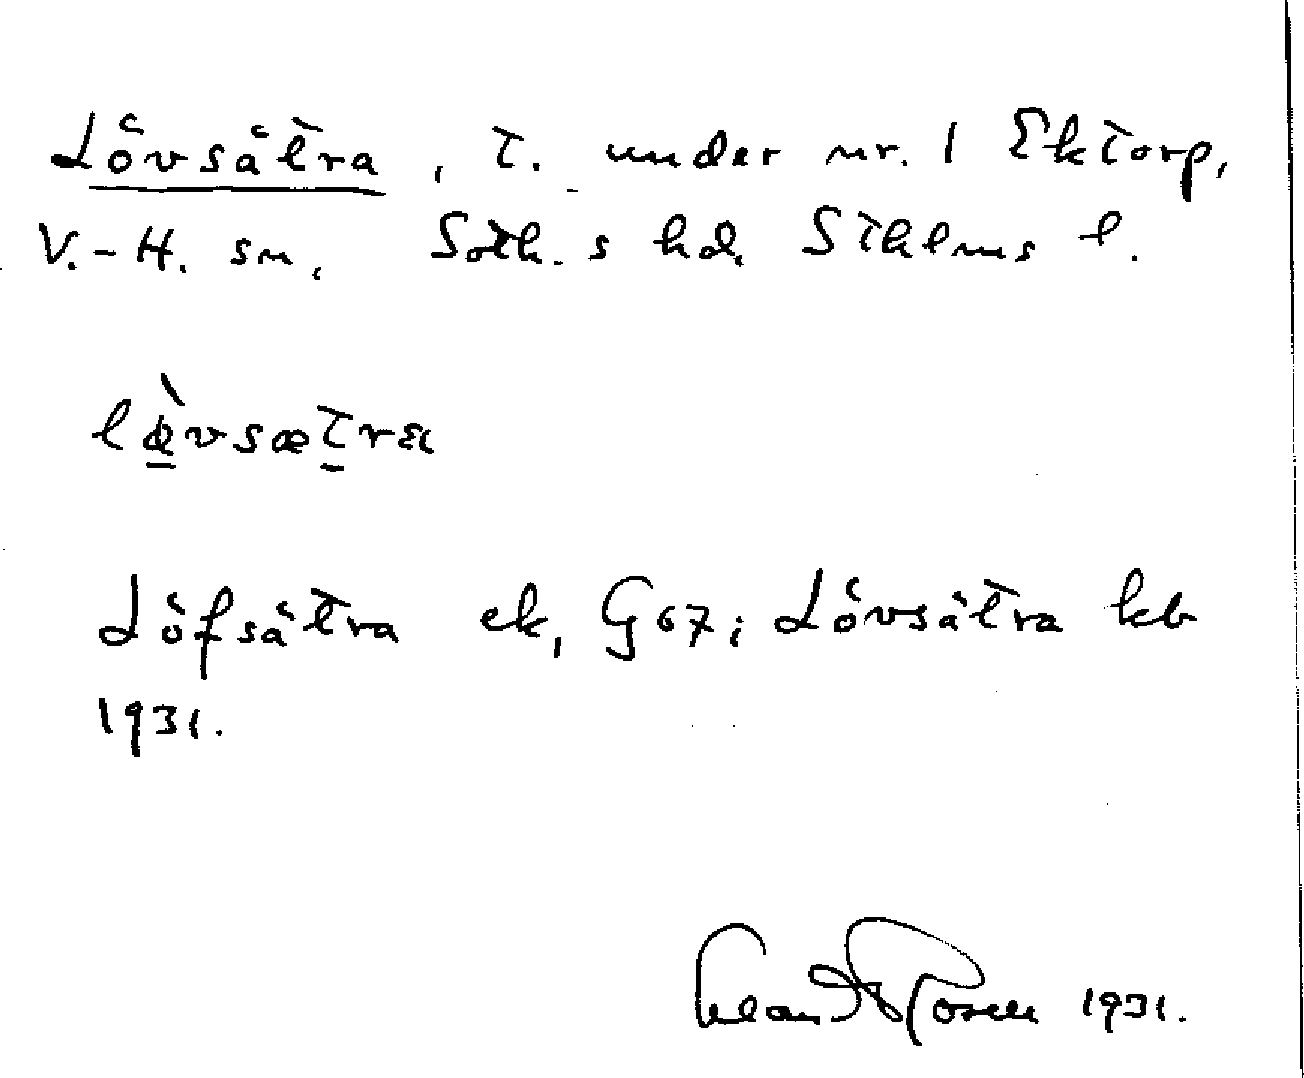 Lövsätra, t. under nr. 1 Ektorp,
V.-H. sn, Soth.s hd, Sthlms l.
lœ̀vsætra
Löfsätra ek, G 67; Lövsätra kb
1931.
Rosell 1931.